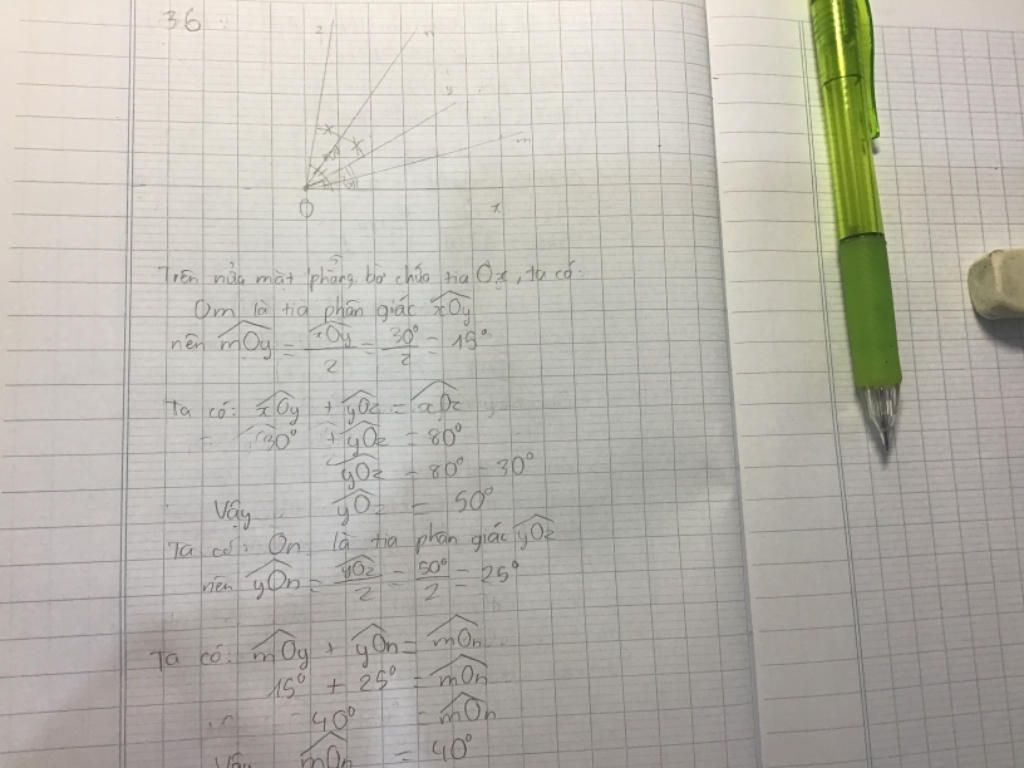 36
z
n
y
m
O
x
Trên nửa mặt phẳng bờ chứa tia Ox, ta có:
Om là tia phân giác xOy
nên mOy = xOy/2 = 30°/2 = 15°
Ta có: xOy + yOz = xOz
30° + yOz = 80°
yOz = 80° - 30°
Vậy yOz = 50°
Ta có: On là tia phân giác yOz
nên yOn = yOz/2 = 50°/2 = 25°
Ta có: mOy + yOn = mOn
15° + 25° = mOn
40° = mOn
Vậy mOn = 40°